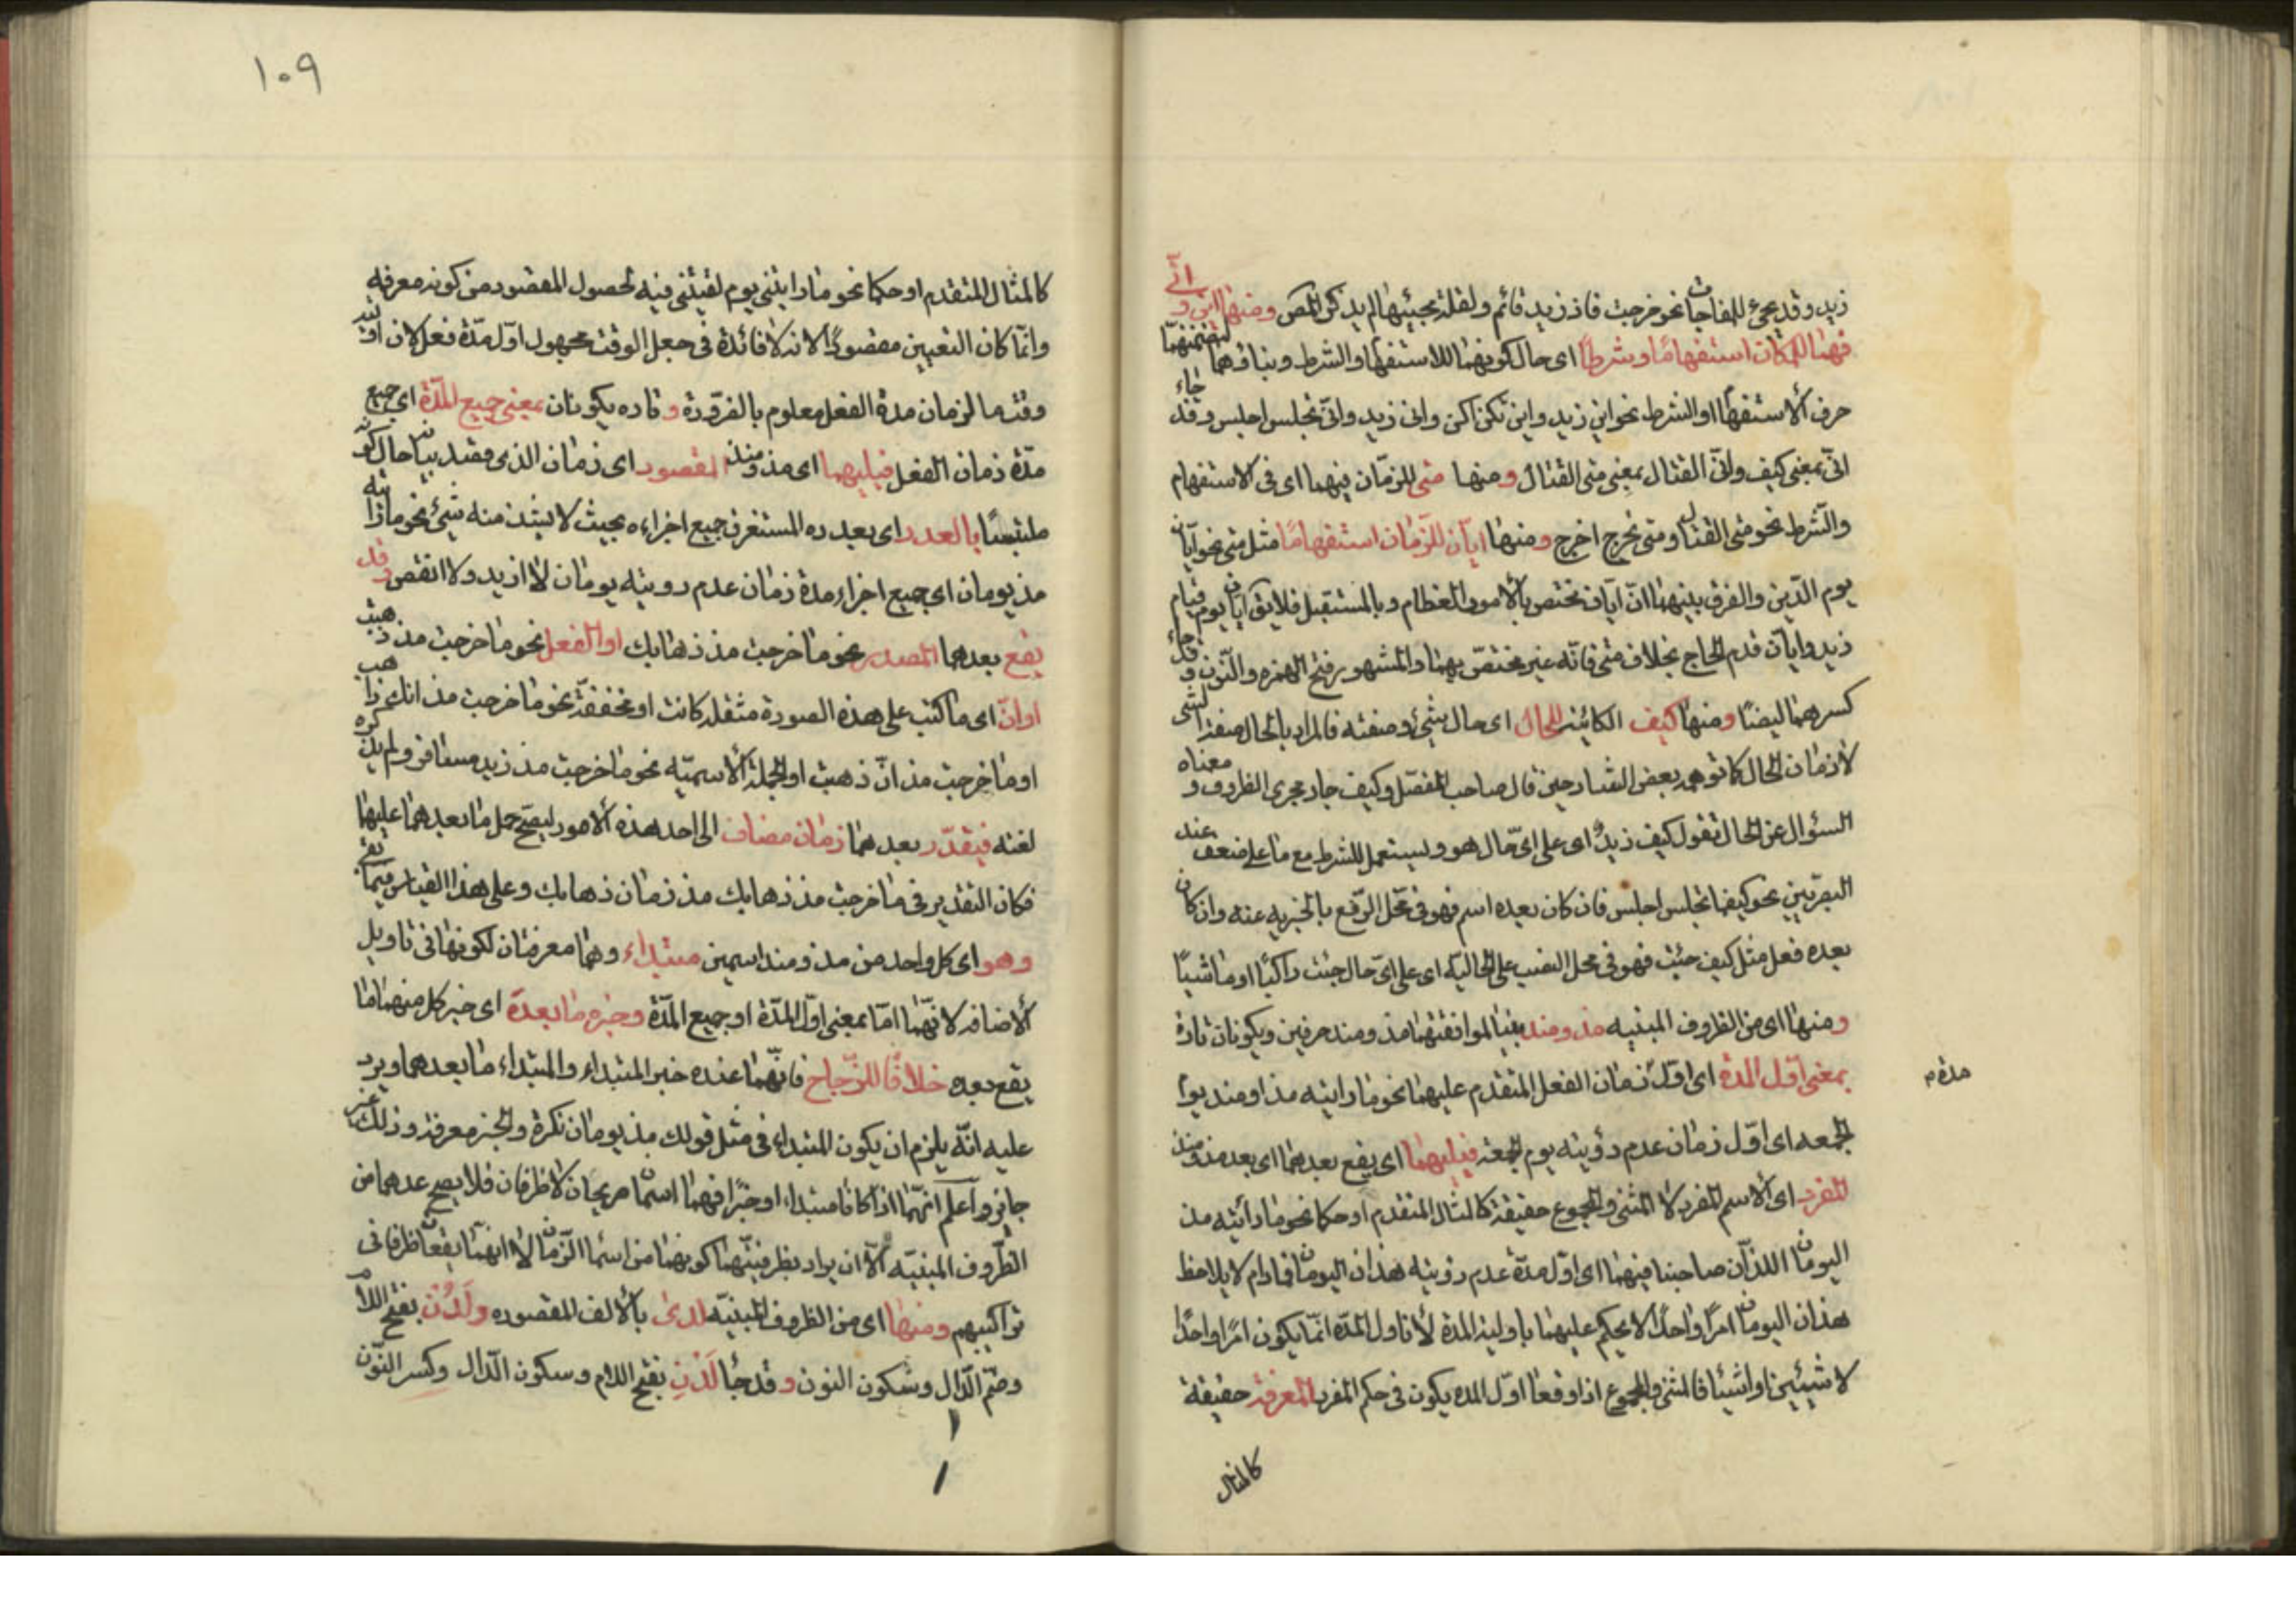 زيد وقد يجيء للمفاجات نحو خرجت فاذ زيد قائم ولقلة مجيئها لم يذكره المص ومنها اين و انّى
فهما للمكان استفهامًا وشرطًا اى حال كونهما للاستفهام والشرط وبناؤهما لتضمنهما
حرف الاستفهام او الشرط نحو اين زيد واين تكن اكن وانى زيد وانّى تجلس اجلس وقد جاء
انّى بمعنى كيف وانّى القتال بمعنى متى القتال ومنها متى للزمان فيهما اى فى الاستفهام
والشرط نحو متى القتال ومتى تخرج اخرج ومنها ايّان للزّمان استفهامًا مثل متى نحو ايّان
يوم الدّين والفرق بينهما انّ ايّان تختص بالأمور العظام وبالمستقبل فلا يق ايّان يوم قيام
زيد وايّان قدم الحاج بخلاف متى فانّه غير مختصّ بهما والمشهور فتح الهمزه والنّون وقد جاء
كسرهما ايضًا ومنها كيف الكائنة للحال اى حال شئ وصفته فالمراد بالحال صفة الشئ
لا زمان الحال كما توهمه بعض الشارحين قال صاحب المفصّل وكيف جار مجرى الظروف و معناه
السؤال عن الحال تقول كيف زيدٌ اى على اىّ حال هو ويستعمل للشرط مع ما على ضعف عند
البصريّين نحو كيفما تجلس اجلس فان كان بعده اسم فهو فى محل الرّفع بالخبريه عنه وان كان
بعده فعل مثل كيف جئت فهو فى محل النصب على الحاليه اى على اىّ حال جئت راكبًا او ماشيًا
ومنها اى من الظروف المبنيه مذ ومنذ بنيا لموافقتهما مذ ومنذ حرفين ويكونان تارة
بمعنى اوّل المدة اى اوّل زمان الفعل المتقدم عليهما نحو ما رايته مذ او منذ يوم
مدة م
الجمعه اى اوّل زمان عدم رؤيته يوم الجمعة فيليهما اى يقع بعدهما اى بعد مذ ومنذ
المفرد اى الاسم المفرد لا المثنى والمجموع حقيقة كالمثال المتقدم او حكما نحو ما رأيته مذ
اليومان اللذان صاحبنا فيهما اى اوّل مدة عدم رؤيته هذان اليومان فما دام لا يلاحظ
هذان اليومان امرًا واحدًا لا يحكم عليهما باولية المدة لأن اول المدّة انّما يكون امرًا واحدًا
لا شيئين او اشيئا فالمثنى والمجموع اذا وقعا اوّل المده يكون فى حكم المفرد المعرفة حقيقة
كالمثال
١٠٩
كالمثال المتقدم او حكما نحو ما رايتنى يوم لقيتنى فيه لحصول المقصود من كونه معرفه
وانّما كان التعيين مقصودًا لانه لا فائدة فى جعل الوقت مجهول اوّل مدّة فعل لان
وقتما لزمان مدة الفعل معلوم بالضرورة وتاره يكونان بمعنى جميع المدّة اى جميع
مدّة زمان الفعل فيليهما اى مذ ومنذ المقصود اى زمان الذى قصد بيانه حال كونه
ملتبسًا بالعدد اى بعدده المستغرق جميع اجزاءه بحيث لا يشذ منه شئ نحو ما رأيته
مذ يومان اى جميع اجزاء مدة زمان عدم رويته يومان لا ازيد ولا انقص وقد
يقع بعدهما المصدر نحو ما خرجت مذ ذهابك او الفعل نحو ما خرجت مذ ذهبت
او انّ اى ما كتب على هذه الصورة مثقله كانت او مخففة نحو ما خرجت مذ انك ذاهب
او ما خرجت مذ انّ ذهبت او الجملة الأسميّه نحو ما خرجت مذ زيد مسافر ولم يذكره
لغته فيقدّر بعدهما زمان مضاف الى احد هذه الأمور ليصح حمل ما بعدهما عليهما
فكان التقدير فى ما خرجت مذ ذهابك مذ زمان ذهابك وعلى هذا القياس فيما بقى
وهو اى كل واحد من مذ ومنذ اسمين مبتداء وهما معرفتان لكونهما فى تاويل
الأضافه لانّهما امّا بمعنى اوّل المدّة او جميع المدّة وخبره ما بعده اى خبر كل منهما ما
يقع بعده خلافًا للزّجاج فانّهما عنده خبر المبتداء والمبتداء ما بعدهما ويرد
عليه انّه يلزم ان يكون المبتداء فى مثل قولك مذ يومان نكرة والخبر معرفة وذلك غير
جايز واعلم انّهما اذا كانا مبتداء او خبرًا فهما اسمان صريحان لا ظرفان فلا يصح عدهما من
الظّروف المبنيّه الّا ان يراد بظرفيّتهما كونهما من اسماء الزّمان لا انهما يقعان ظرفا فى
تراكيبهم ومنها اى من الظروف المبنيّه لدى بالألف المقصوره ولَدُنْ بفتح اللام
وضمّ الدّال وسكون النون وقد جاء لَدْنِ بفتح اللام وسكون الدّال وكسر النّون